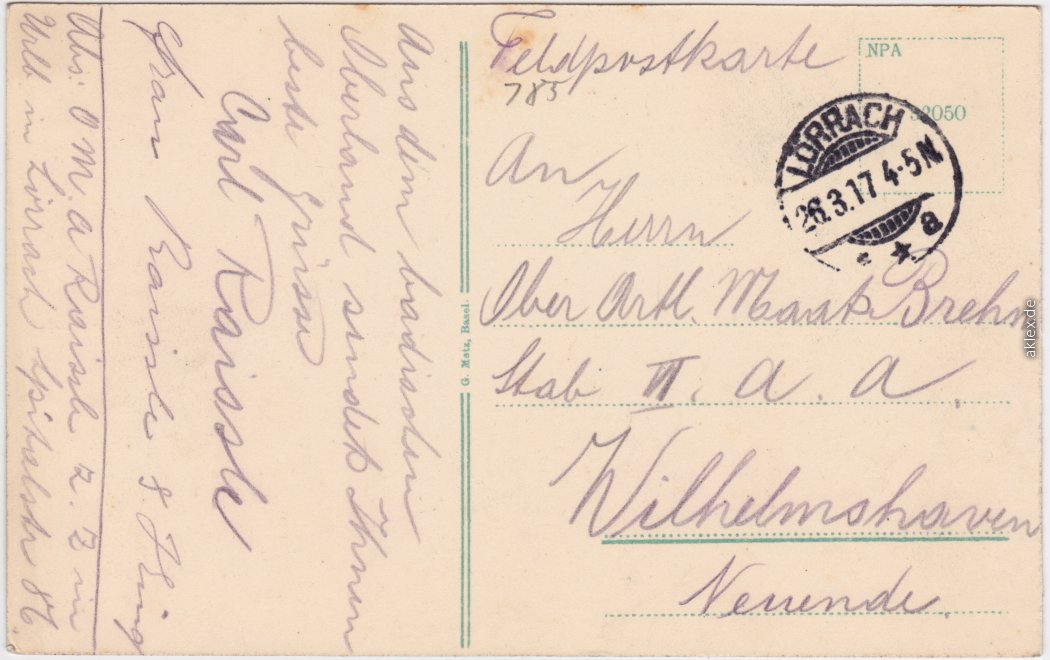 Feldpostkarte
785
NPA
32050
LÖRRACH
26.3.17 4-5N
* * a
An
Herrn
Ober Artl. Maat Brehm
Stab II. A. A.
Wilhelmshaven
Neuende.
G. Metz, Basel.
Aus dem badischen
Oberland sendet Ihnen
beste Grüsse
Carl Raissle
Frau Raissle &
Abs: O M. A Raissle z. Z in
Urlb in Lörrach Spitalstr 86.
aklex.de